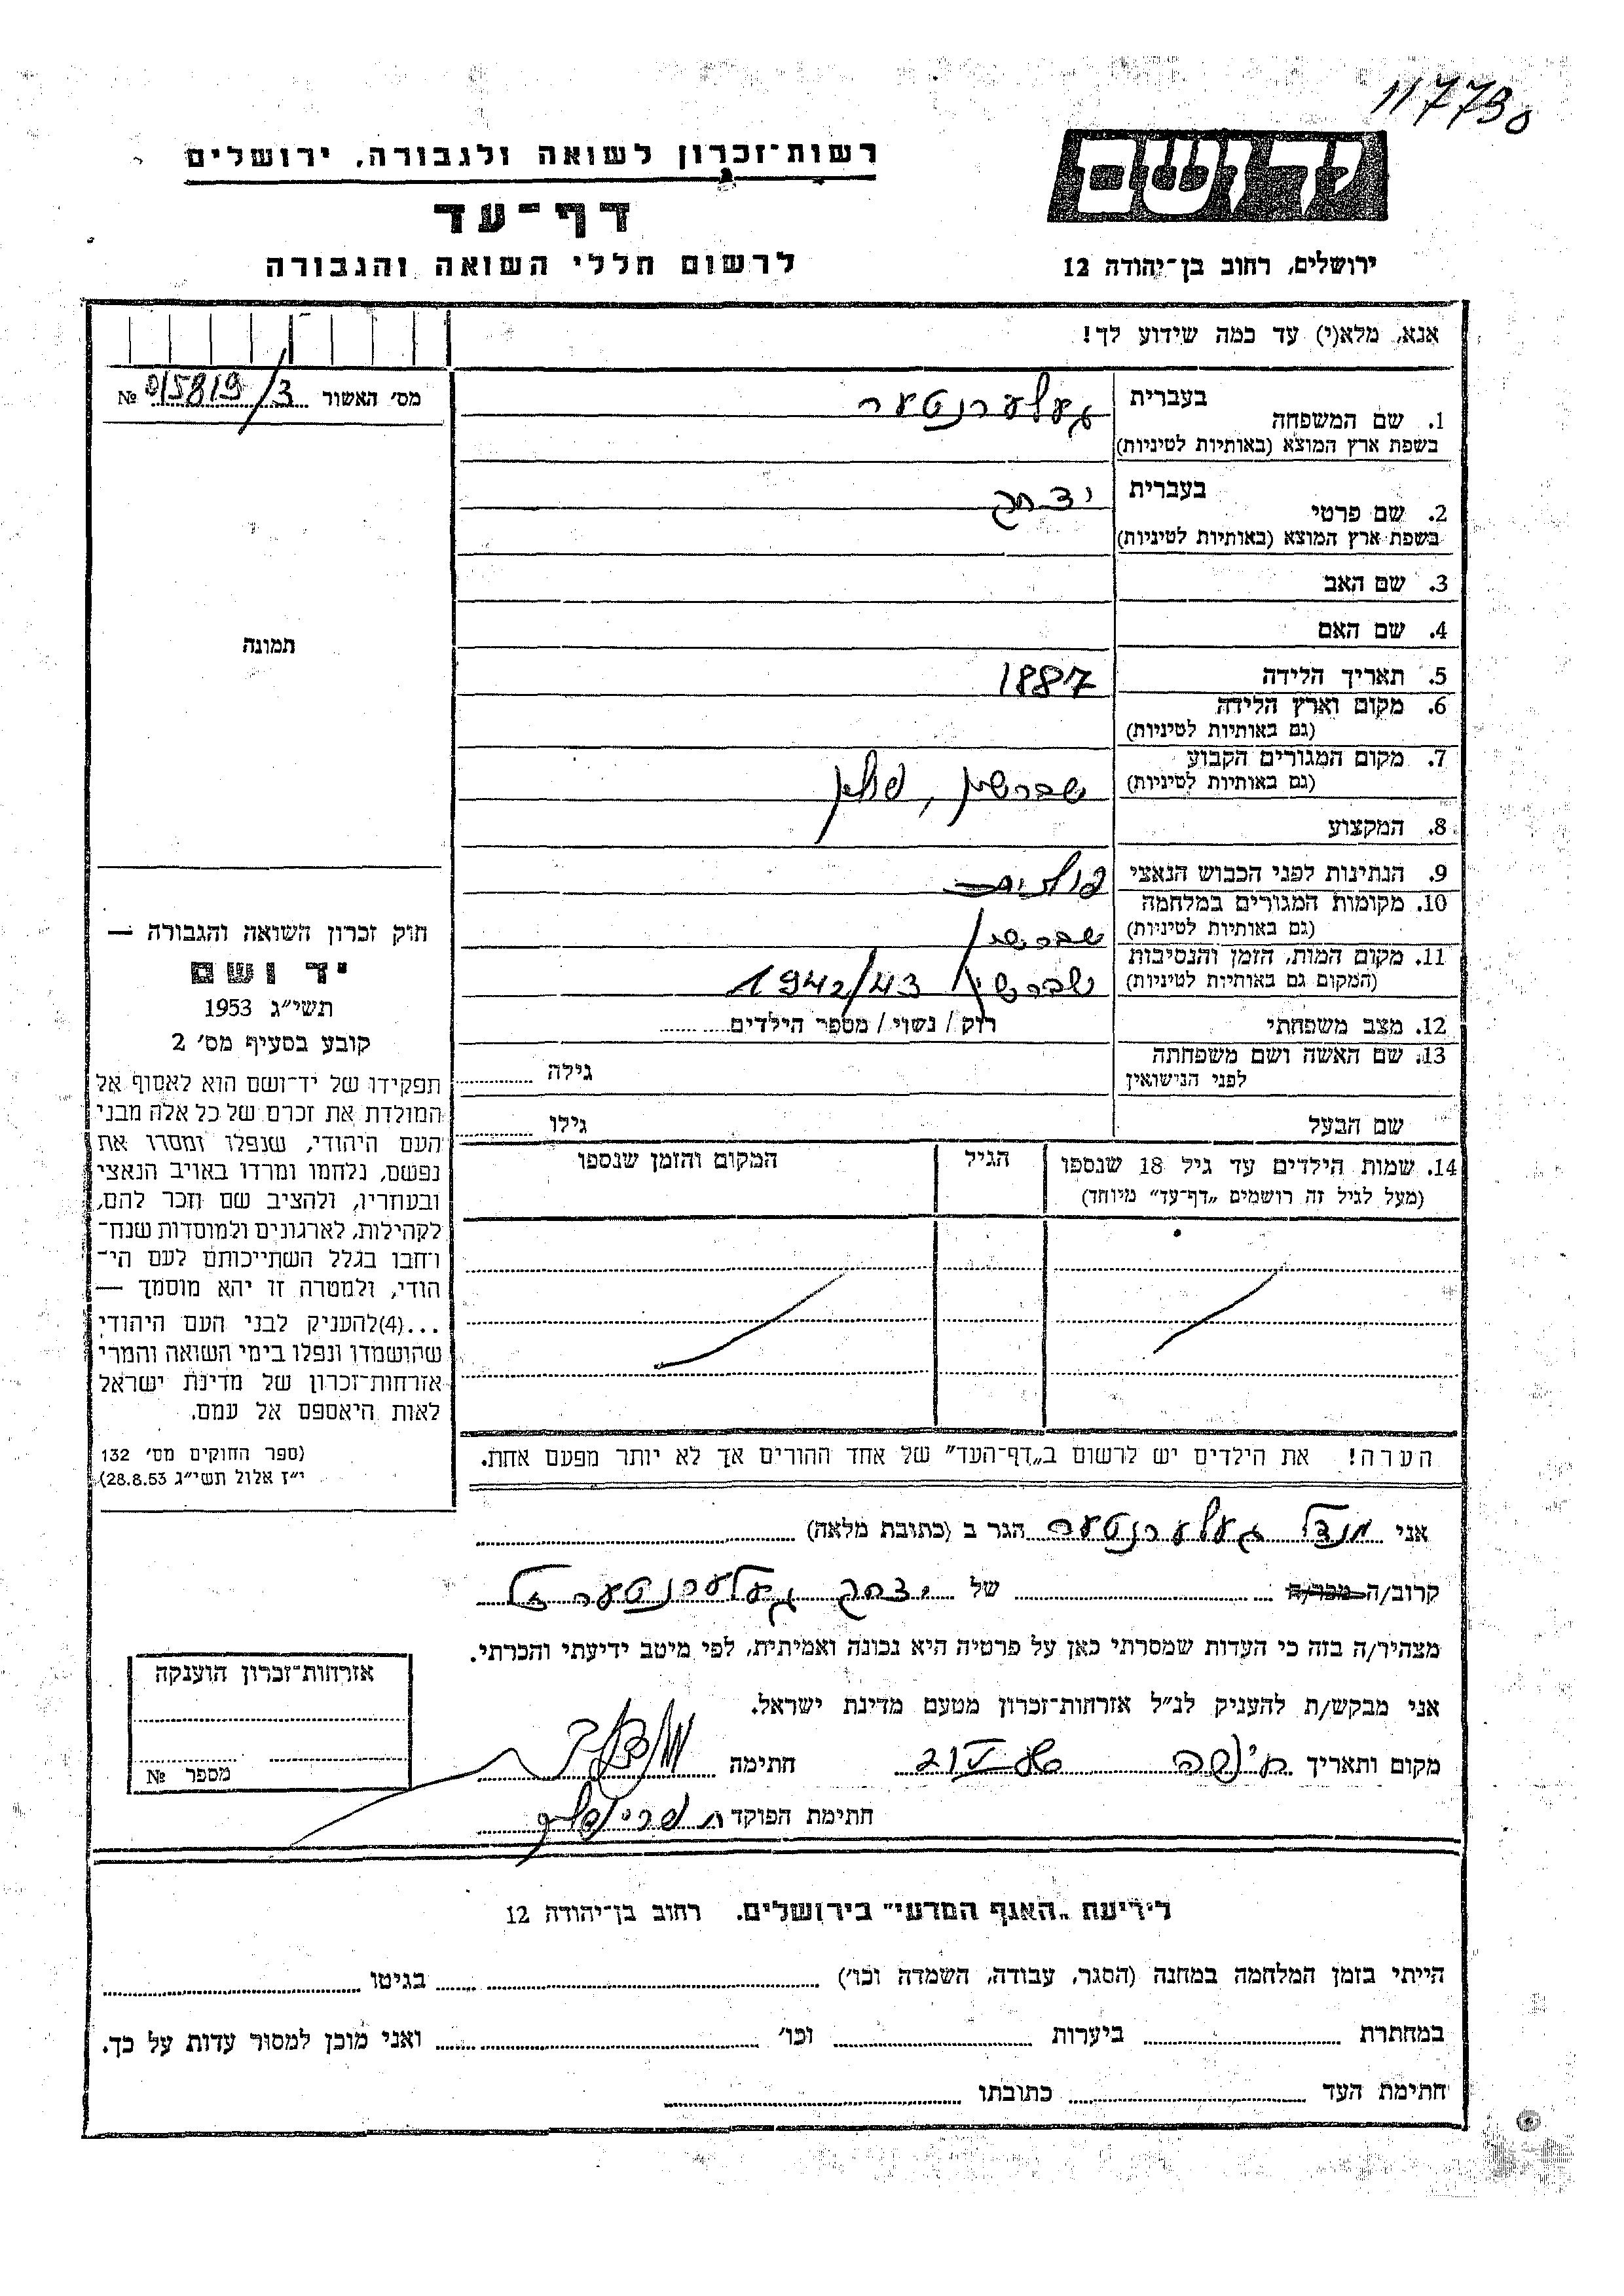 117730
ידושם
רשות־זכרון לשואה ולגבורה, ירושלים
דף־עד
לרשום חללי השואה והגבורה
ירושלים, רחוב בן־יהודה 12
אנא, מלא(י) עד כמה שידוע לך!
מס׳ האשור 015819/3 №
תמונה
1. שם המשפחה
בעברית געלערנטער
בשפת ארץ המוצא (באותיות לטיניות)
2. שם פרטי
בעברית יצחק
בשפת ארץ המוצא (באותיות לטיניות)
3. שם האב
4. שם האם
5. תאריך הלידה 1887
6. מקום וארץ הלידה
(גם באותיות לטיניות)
7. מקום המגורים הקבוע
(גם באותיות לטיניות) שברשין, פולין
8. המקצוע
9. הנתינות לפני הכבוש הנאצי פולנית
10. מקומות המגורים במלחמה
(גם באותיות לטיניות) שברשין
11. מקום המות, הזמן והנסיבות
(המקום גם באותיות לטיניות) שברשין 1942/43
12. מצב משפחתי רוק / נשוי / מספר הילדים
13. שם האשה ושם משפחתה
לפני הנישואין גילה
שם הבעל גילו
14. שמות הילדים עד גיל 18 שנספו
(מעל לגיל זה רושמים „דף־עד״ מיוחד)
הגיל
המקום והזמן שנספו
הערה! את הילדים יש לרשום ב„דף־העד״ של אחד ההורים אך לא יותר מפעם אחת.
חוק זכרון השואה והגבורה —
יד ושם
תשי״ג 1953
קובע בסעיף מס׳ 2
תפקידו של יד־ושם הוא לאסוף אל
המולדת את זכרם של כל אלה מבני
העם היהודי, שנפלו ומסרו את
נפשם, נלחמו ומרדו באויב הנאצי
ובעוזריו, ולהציב שם וזכר להם,
לקהילות, לארגונים ולמוסדות שנח־
רחבו בגלל השתייכותם לעם הי־
הודי, ולמטרה זו יהא מוסמך —
...(4)להעניק לבני העם היהודי
שהושמדו ונפלו בימי השואה והמרי
אזרחות־זכרון של מדינת ישראל
לאות היאספם אל עמם.
(ספר החוקים מס׳ 132
י״ז אלול תשי״ג 28.8.53)
אני מנדל געלערנטער הגר ב (כתובת מלאה)
קרוב/ה מכר/ה של יצחק געלערנטער ז״ל
מצהיר/ה בזה כי העדות שמסרתי כאן על פרטיה היא נכונה ואמיתית, לפי מיטב ידיעתי והכרתי.
אני מבקש/ת להעניק לנ״ל אזרחות־זכרון מטעם מדינת ישראל.
מקום ותאריך 21 V חתימה
חתימת הפוקד
אזרחות־זכרון הוענקה
מספר №
לידיעת „האגף המדעי״ בירושלים. רחוב בן־יהודה 12
הייתי בזמן המלחמה במחנה (הסגר, עבודה, השמדה וכו׳) בגיטו
במחתרת ביערות וכו׳ ואני מוכן למסור עדות על כך.
חתימת העד כתובתו